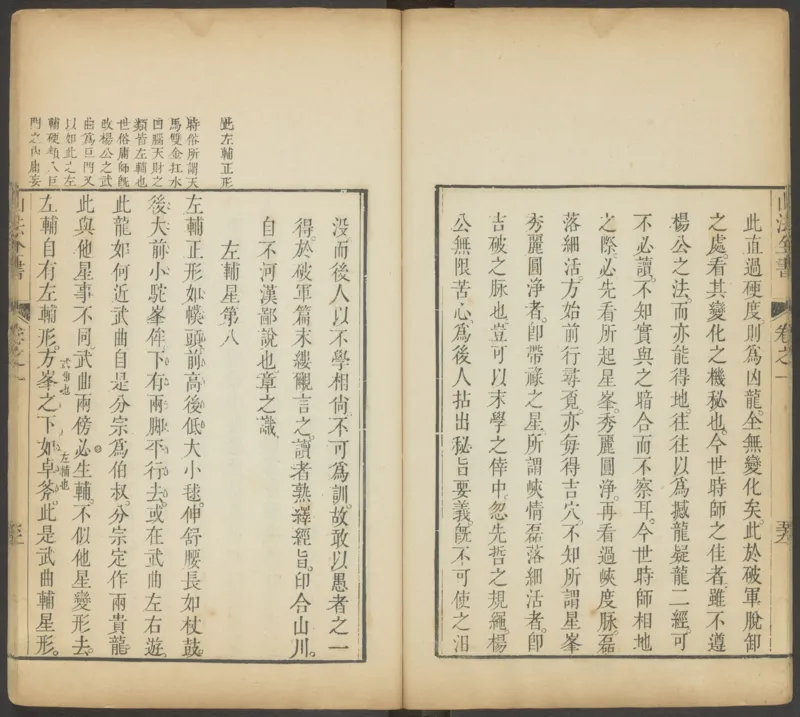 此直過硬度則為凶龍全無變化矣此於破軍脫卸
之處看其變化之機秘也今世時師之佳者雖不遵
楊公之法而亦能得地往往以為撼龍疑龍二經可
不必讀不知實與之暗合而不察耳今世時師相地
之際必先看所起星峯秀麗圓淨再看過峽度脉磊
落細活方始前行尋覔亦每得吉穴不知所謂星峯
秀麗圓淨者即帶祿之星所謂峽情磊落細活者即
吉破之脉也豈可以末學之倖中忽先哲之規繩楊
公無限苦心為後人拈出秘旨要義既不可使之汨
山法全書
卷之一
沒而後人以不學相尚不可為訓故敢以愚者之一
得於破軍篇末縷覼言之讀者熟繹經旨印合山川
自不河漢鄙說也章之識
左輔星第八
左輔正形如幞頭前高後低大小毬伸舒腰長如杖鼓
後大前小駝峯侔下有兩脚平行去或在武曲左右遊
此龍如何近武曲自是分宗為伯叔分宗定作兩貴龍
此與他星事不同武曲兩傍必生輔不似他星變形去
左輔自有左輔形方峯之下如卓斧此是武曲輔星形
武曲也
左輔也
此左輔正形
時俗所謂天
馬雙金扛水
凹腦天財之
類皆左輔也
世俗庸師既
改楊公之武
曲為巨門又
以如此之左
輔硬頼入巨
門之內庸妄
山法全書
卷之一